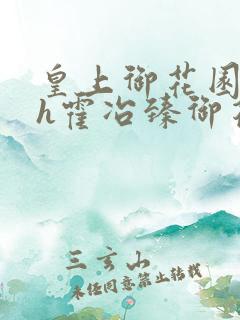 皇上御花园
h霍冶臻御花
三玄山
未经同意禁止转载